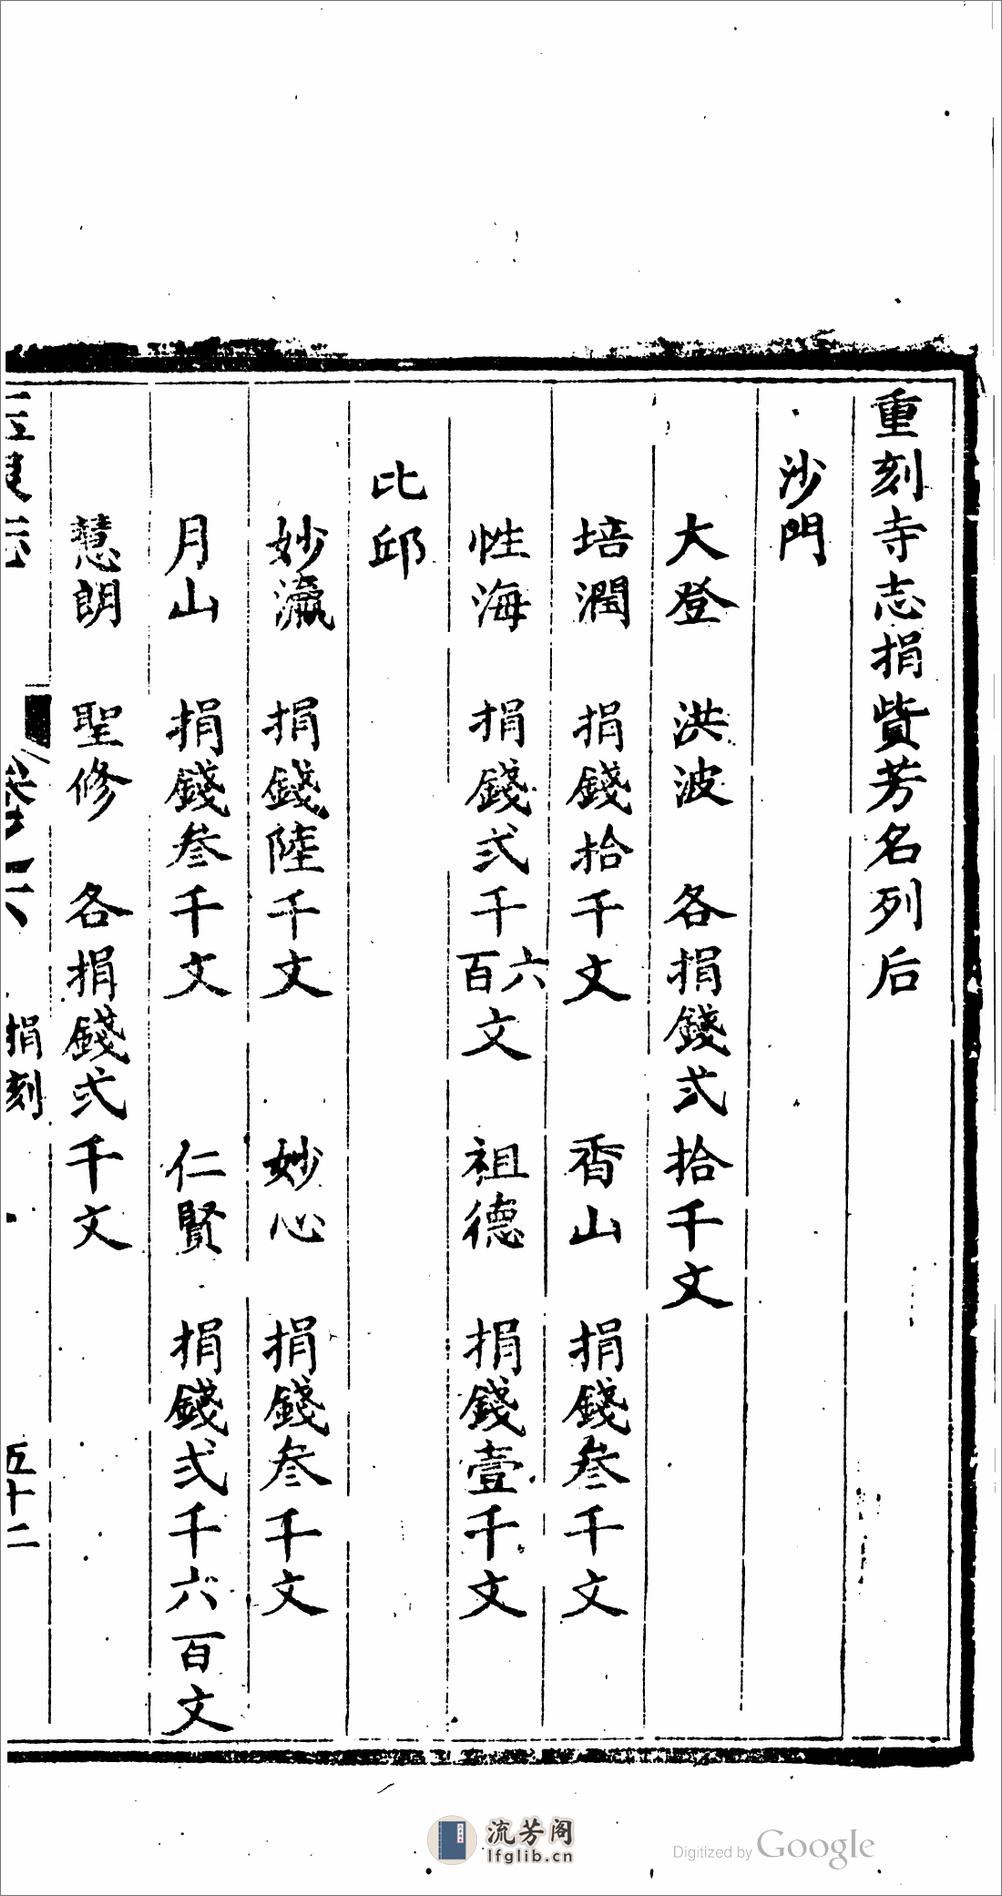 重刻寺志捐貲芳名列后
沙門
大登　洪波　各捐錢弍拾千文
培潤　捐錢拾千文　香山　捐錢叁千文
性海　捐錢弍千六百文　祖德　捐錢壹千文
比邱
妙瀛　捐錢陸千文　妙心　捐錢叁千文
月山　捐錢叁千文　仁賢　捐錢弍千六百文
慧朗　聖修　各捐錢弍千文
捐刻　五十二
流芳阁
lfglib.cn
Digitized by Google